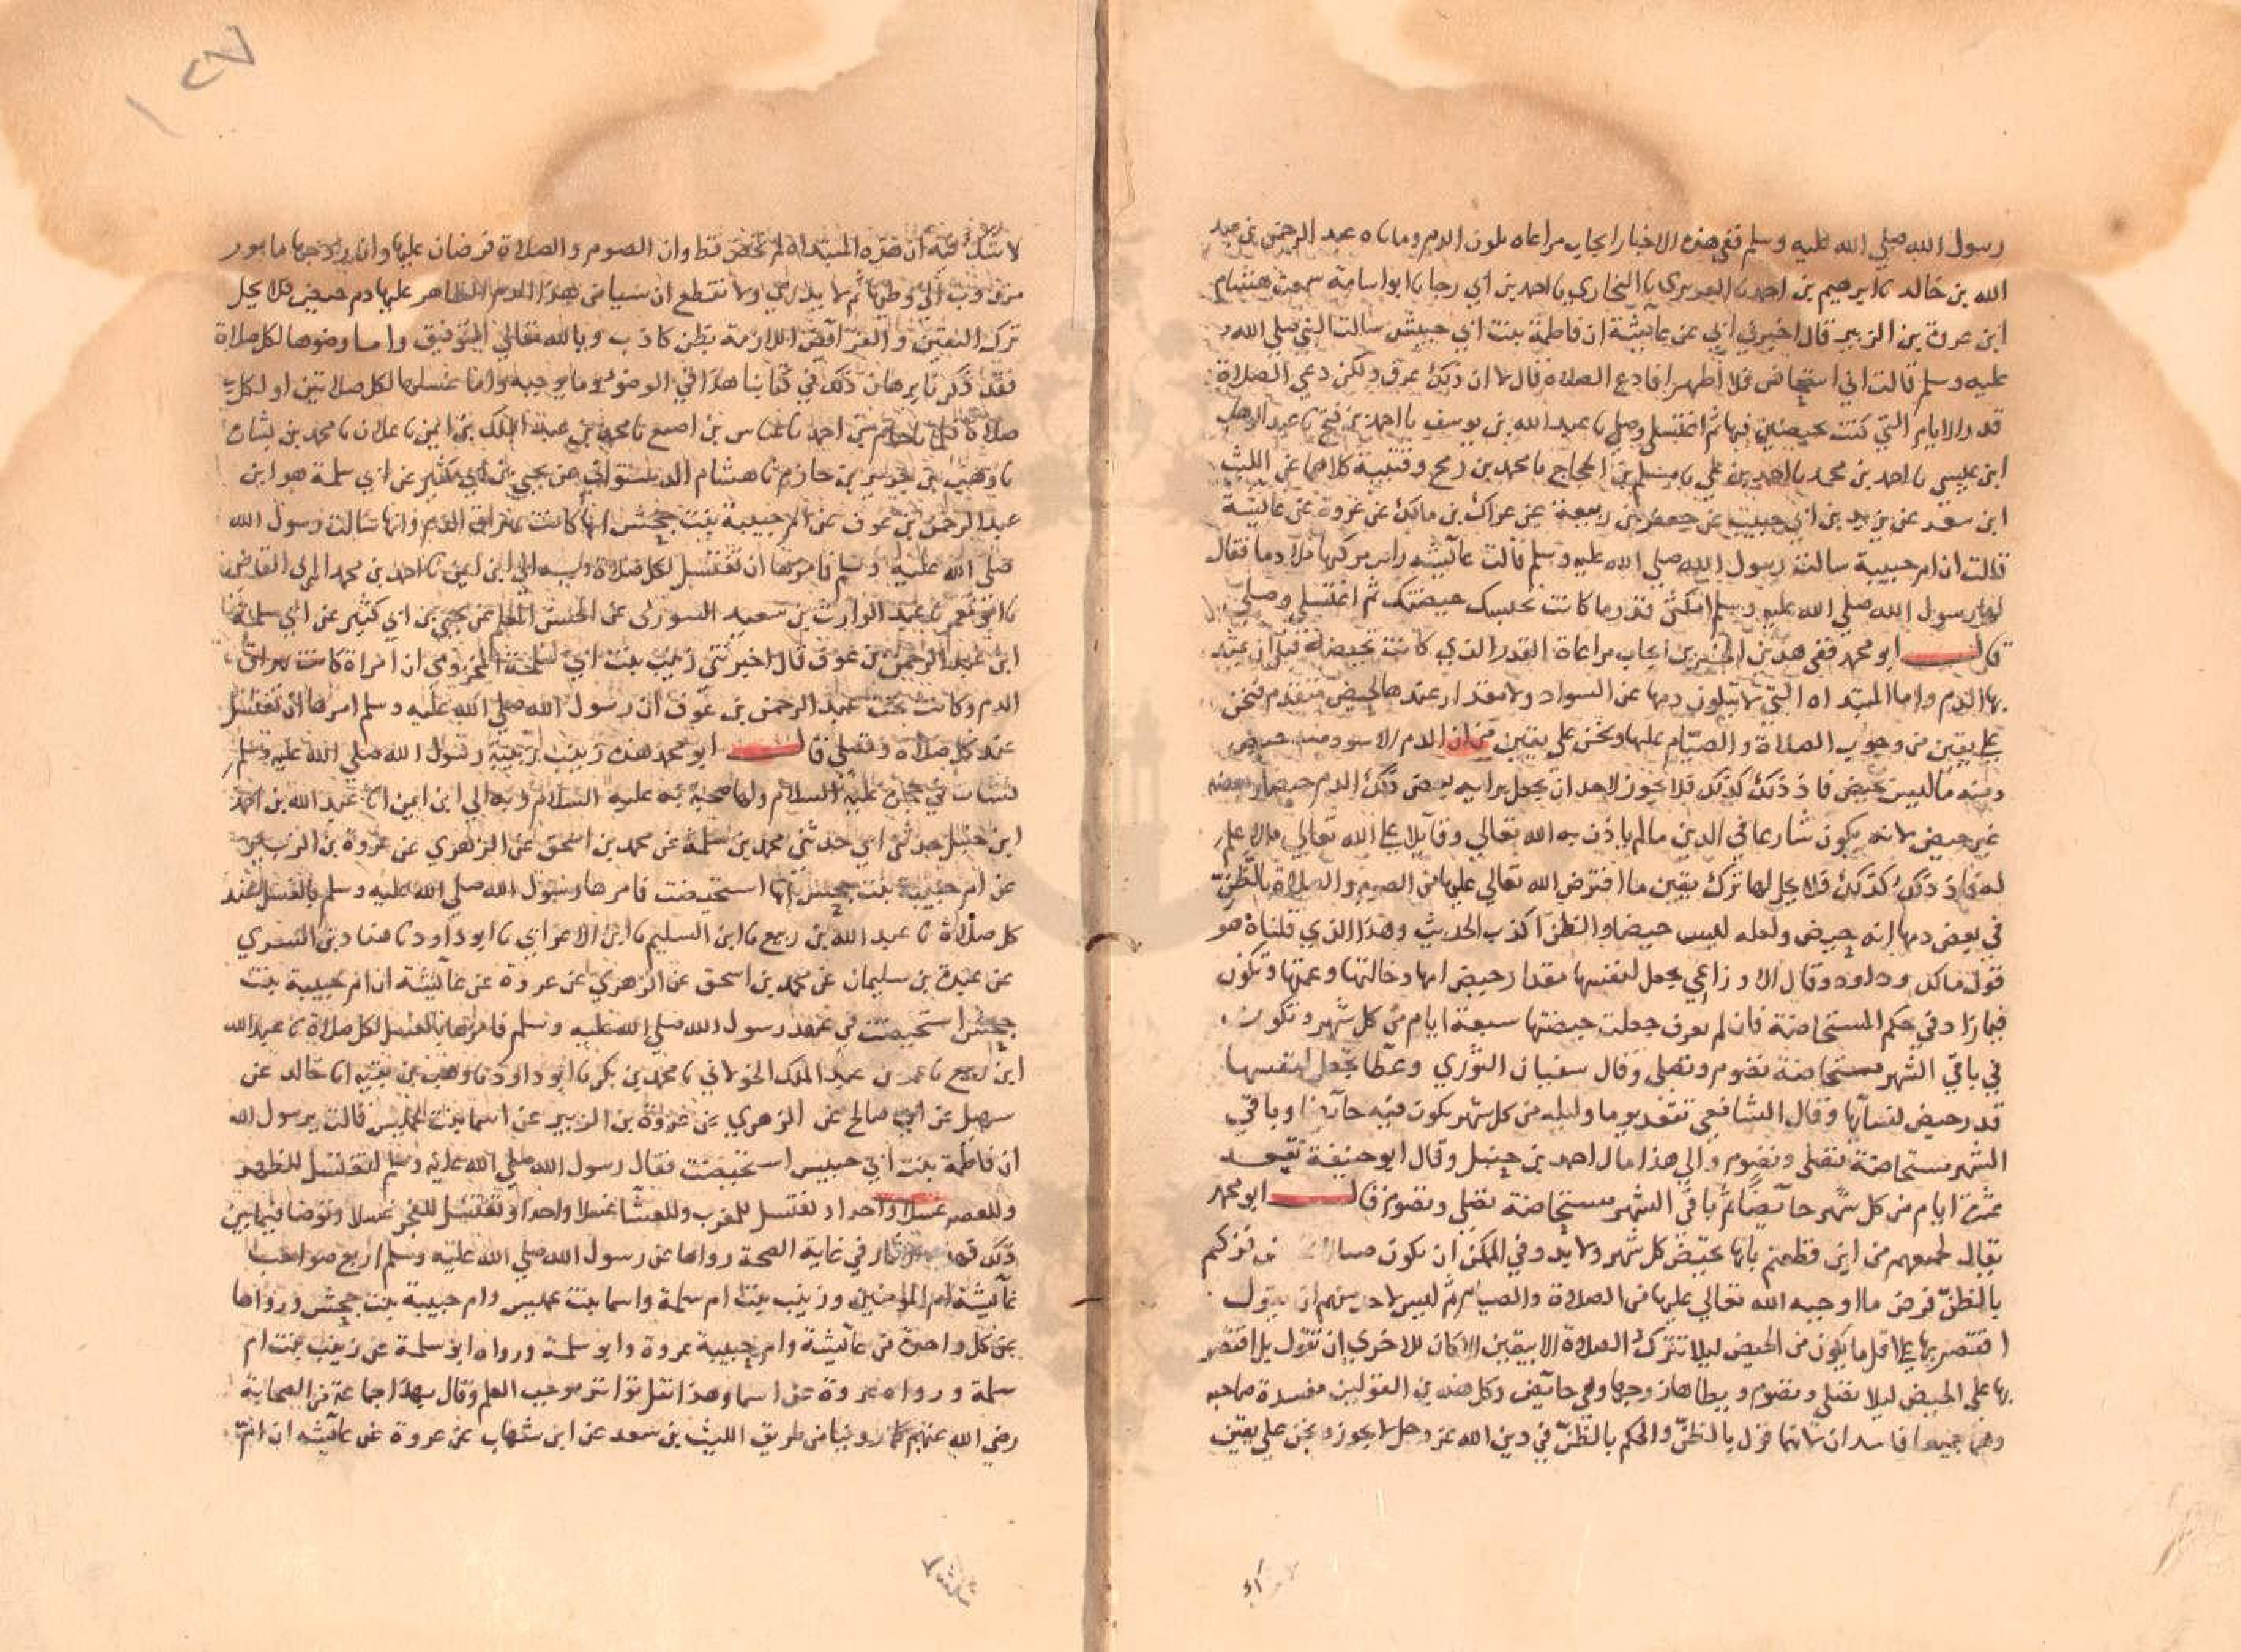 رسول الله صلي الله عليه وسلم ففي هذه الاخبار ايجاب مراعاه تلون الدم وما ناه عبد الرحمن بن عبد
الله بن خالد نا ابرهيم بن احمد نا الفربري نا البخاري نا احمد بن ابي رجا نا ابو اسامة سمعت هشام
ابن عروة بن الزبير قال اخبرني ابي عن عآئشة ان فاطمة بنت ابي حبيش سالت النبي صلي الله
عليه وسلم قالت اني استحاض فلا اطهر افادع الصلاة قال لا ان ذلك عرق ولكن دعي الصلاة
قدر الايام التي كنت تحيضين فيها ثم اغتسلي وصلي نا عبد الله بن يوسف نا احمد بن فتح نا عبد الوهاب
ابن عيسي نا احمد بن محمد نا احمد بن علي نا مسلم بن الحجاج نا محمد بن رمح وقتيبة كلاهما عن الليث
ابن سعد عن يزيد بن ابي حبيب عن جعفر بن ربيعة عن عراك بن مالك عن عروة عن عآئشة
قالت ان ام حبيبة سالت رسول الله صلي الله عليه وسلم قالت عآئشه رايت مركنها ملآ دما فقال
لها رسول الله صلي الله عليه وسلم امكثي قدر ما كانت تحبسك حيضتك ثم اغتسلي وصلي
قال ابو محمد ففي هذين الخبرين ايجاب مراعاة القدر الذي كانت تحيضه قبل ان يمتد
بها الدم واما المبتداه التي لا يتلون دمها عن السواد ولا مقدار عندها لحيض متقدم فنحن
علي يقين من وجوب الصلاة والصيام عليها ونحن علي يقين من ان الدم الاسود منه حيض
ومنه ما ليس بحيض فاذ ذلك كذلك فلا يجوز لاحد ان يجعل برايه بعض ذلك الدم حيضا وبعضه
غير حيض لانه يكون شارعا في الدين ما لم ياذن به الله تعالي وقآئلا علي الله تعالي ما لا علم
له فاذ ذلك كذلك فلا يحل لها ترك يقين ما افترض الله تعالي عليها من الصوم والصلاة بالظن
في بعض دمها انه حيض ولعله ليس حيضا والظن اكذب الحديث وهذا الذي قلناه هو
قول مالك وداود وقال الاوزاعي يجعل لنفسها مقدار حيض امها وخالتها وعمتها وتكون
فيما زاد في حكم المستحاضة فان لم يعرف جعلت حيضتها سبعة ايام من كل شهر وتكون
في باقي الشهر مستحاضة تصوم وتصلي وقال سفيان الثوري وعطا تجعل لنفسها
قدر حيض نسآئها وقال الشافعي تقعد يوما وليله من كل شهر يكون فيه حآئضا وباقي
الشهر مستحاضة تصلي وتصوم والي هذا مال احمد بن حنبل وقال ابو حنيفة تقعد
عشرة ايام من كل شهر حآئضا ثم باقي الشهر مستحاضة تصلي وتصوم قال ابو محمد
يقال لجميعهم من اين قطعتم بانها تحيض كل شهر ولا بد وفي الممكن ان تكون فتركتم
بالظن فرض ما اوجبه الله تعالي عليها من الصلاة والصيام ثم ليس لاحد منهم ان يقول
اقتصر بها علي اقل ما يكون من الحيض ليلا تترك الصلاة الا بيقين الا كان للاخري ان تقول بل اقتصر
بها علي الحيض ليلا تصلي وتصوم ويطاها زوجها وهي حآئض وكل هذين القولين مفسدة صاحبه
وهما جميعا فاسدان لانهما قول بالظن والحكم بالظن في دين الله عز وجل لا يجوز ونحن علي يقين
لا شك فيه ان هذه المبتداه لم تحض قط وان الصوم والصلاة فرضان عليها وان زوجها مامور
مندوب الي وطيها ثم لا يدري ولا نقطع ان شيا من هذا الدم الظاهر عليها دم حيض فلا يحل
ترك اليقين والفرآئض اللازمة بظن كاذب وبالله تعالي التوفيق واما وضوها لكل صلاة
فقد ذكرنا برهان ذلك في كتابنا هذا في الوضو وما يوجبه واما غسلها لكل صلاتين او لكل
صلاة نا عباس بن اصبغ نا محمد بن عبد الملك بن ايمن نا علان نا محمد بن بشار
نا وهب بن جرير بن حازم نا هشام الدستوائي عن يحيي بن ابي كثير عن ابي سلمة هو ابن
عبد الرحمن بن عوف عن ام حبيبة بنت جحش انها كانت تهراق الدم وانها سالت رسول الله
صلي الله عليه وسلم فامرها ان تغتسل لكل صلاة وبه الي ابن ايمن نا احمد بن محمد البرتي القاضي
نا ابو معمر نا عبد الوارث بن سعيد التنوري عن الحسين المعلم عن يحيي بن ابي كثير عن ابي سلمة
ابن عبد الرحمن بن عوف قال اخبرتني زينب بنت ابي سلمة المخزومي ان امراة كانت تهراق
الدم وكانت تحت عبد الرحمن بن عوف ان رسول الله صلي الله عليه وسلم امرها ان تغتسل
عند كل صلاه وتصلي قال ابو محمد هذه زينب ربيبة رسول الله صلي الله عليه وسلم
نشات في حجره عليه السلام ولها صحبة به عليه السلام وبه الي ابن ايمن نا عبد الله بن احمد
ابن حنبل حدثني ابي حدثني محمد بن سلمة عن محمد بن اسحق عن الزهري عن عروة بن الزبير
عن ام حبيبة بنت جحش انها استحيضت فامرها رسول الله صلي الله عليه وسلم بالغسل عند
كل صلاة نا عبد الله بن ربيع نا ابن السليم نا ابن الاعرابي نا ابو داود نا هناد بن السري
عن عبدة بن سليمان عن محمد بن اسحق عن الزهري عن عروة عن عآئشة ان ام حبيبة بنت
جحش استحيضت في عهد رسول الله صلي الله عليه وسلم فامرها بالغسل لكل صلاة نا عبد الله
ابن ربيع نا عمر بن عبد الملك الخولاني نا محمد بن بكر نا ابو داود نا وهب بن بقيه انا خالد عن
سهيل عن ابي صالح عن الزهري عن عروة بن الزبير عن اسما بنت عميس قالت يرسول الله
ان فاطمة بنت ابي حبيس استحيضت فقال رسول الله صلي الله عليه وسلم لتغتسل للظهر
وللعصر غسلا واحدا وتغتسل للمغرب وللعشا غسلا واحدا وتغتسل للفجر غسلا وتوضا فيما بين
ذلك فهذه في غاية الصحة رواها عن رسول الله صلي الله عليه وسلم اربع صواحب
عآئشة ام المومنين وزينب بنت ام سلمة واسما بنت عميس وام حبيبة بنت جحش ورواها
عن كل واحدة من عآئشة وام حبيبة عروة وابو سلمة ورواه ابو سلمة عن زينب بنت ام
سلمة ورواه عروة عن اسما وهذا نقل تواتر يوجب العلم وقال بهذا جماعة من الصحابة
رضي الله عنهم كما روينا من طريق الليث بن سعد عن ابن شهاب عن عروة عن عآئشه ان ام